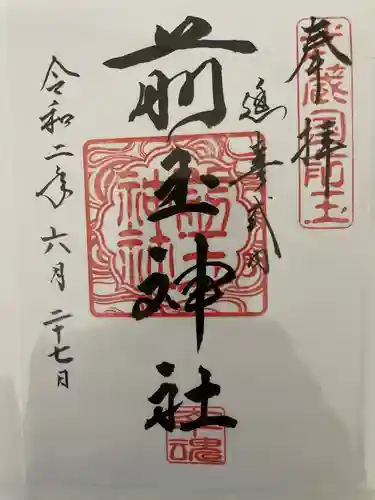 奉拝
武蔵国前玉
延喜式内
前玉神社
前玉神社
幸魂
令和二年六月二十七日